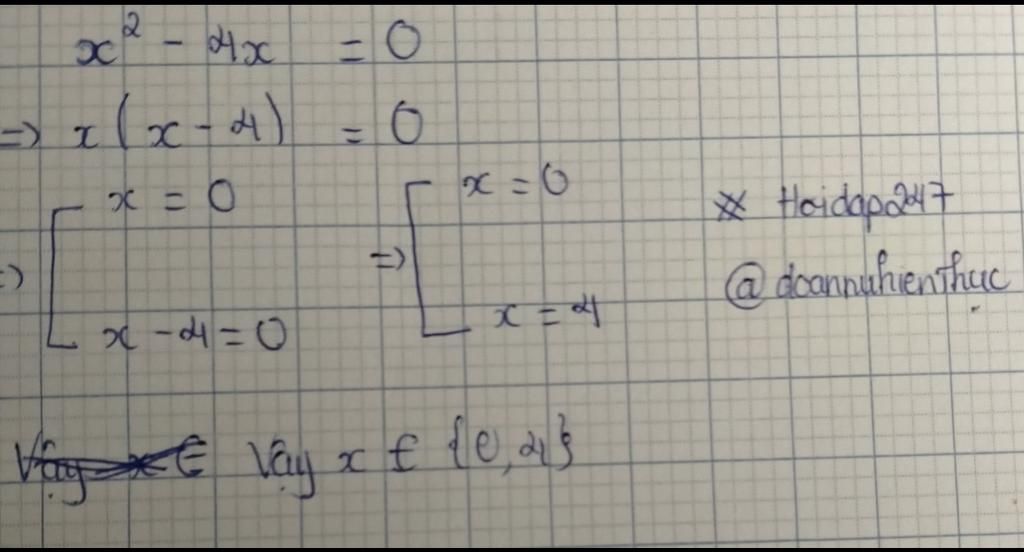 x² - 4x = 0
=> x(x - 4) = 0
=> [ x = 0 => [ x = 0
x - 4 = 0 x = 4
* Hoidap247
@doannuhienthuc
Vậy x ∈ Vậy x ∈ {0, 4}